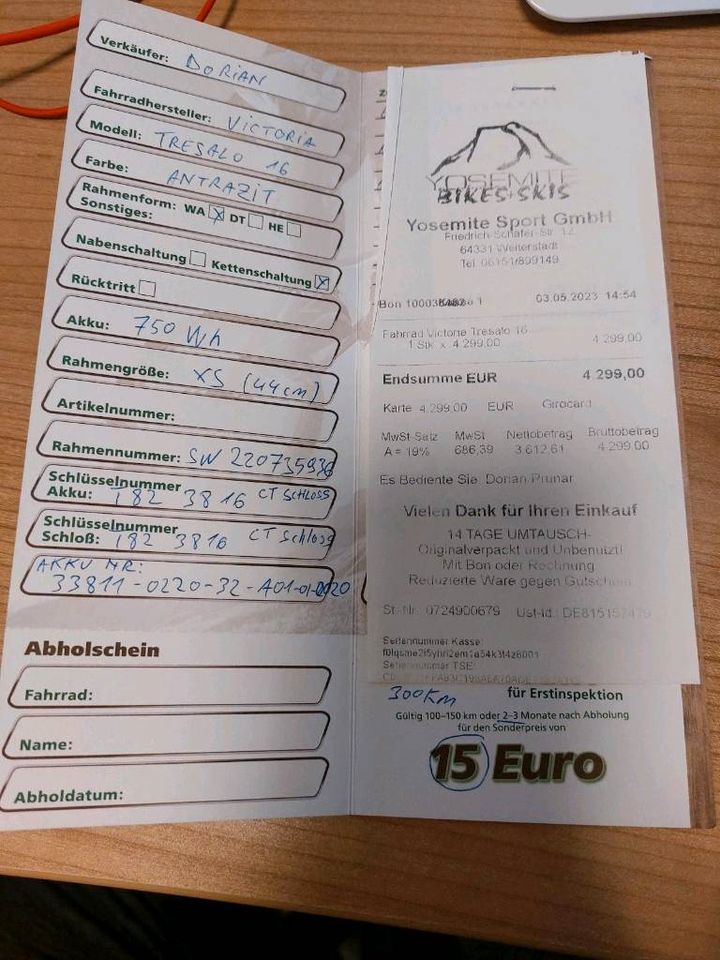 Verkäufer: DORIAN
Fahrradhersteller: VICTORIA
Modell: TRESALO 16
Farbe: ANTRAZIT
Rahmenform: WA DT HE
Sonstiges:
Nabenschaltung Kettenschaltung
Rücktritt
Akku: 750 Wh
Rahmengröße: XS (44cm)
Artikelnummer:
Rahmennummer: SW 220735936
Schlüsselnummer
Akku: T82 3816 CT SCHLOSS
Schlüsselnummer
Schloß: T82 3816 CT Schloss
AKKU NR:
33811-0220-32-A01-01-0020
Abholschein
Fahrrad:
Name:
Abholdatum:
YOSEMITE
BIKES+SKIS
Yosemite Sport GmbH
Friedrich-Schäfer-Str. 12
64331 Weiterstadt
Tel. 06151/899149
Bon Kasse 1 03.05.2023 14:54
Fahrrad Victoria Tresalo 16
1 Stk x 4.299,00 4.299,00
Endsumme EUR 4.299,00
Karte 4.299,00 EUR Girocard
MwSt-Satz MwSt Nettobetrag Bruttobetrag
A = 19% 686,39 3.612,61 4.299,00
Es Bediente Sie: Dorian Prunar
Vielen Dank für Ihren Einkauf
14 TAGE UMTAUSCH-
Originalverpackt und Unbenutzt!
Mit Bon oder Rechnung
Reduzierte Ware gegen Gutschein
St-Nr. 0724900679 Ust-Id.:
Seriennummer Kasse:
Seriennummer TSE:
300Km für Erstinspektion
Gültig 100–150 km oder 2–3 Monate nach Abholung
für den Sonderpreis von
15 Euro